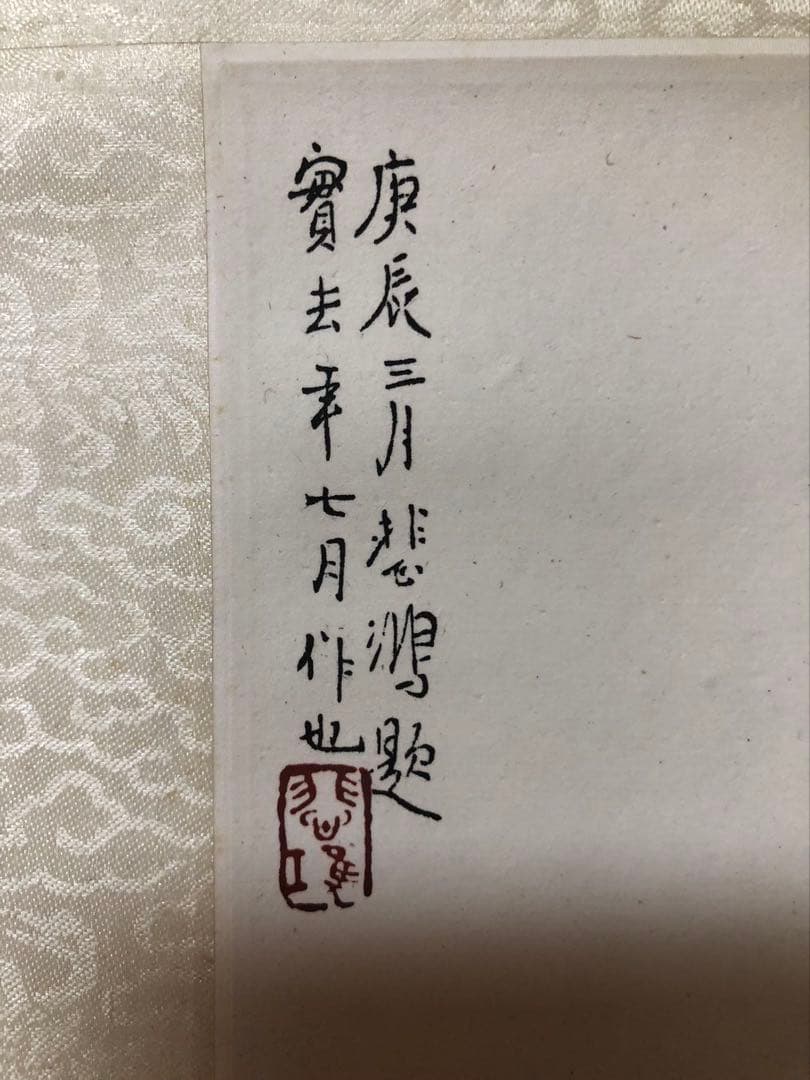 庚辰三月悲鴻題
實去年七月作也
悲鴻